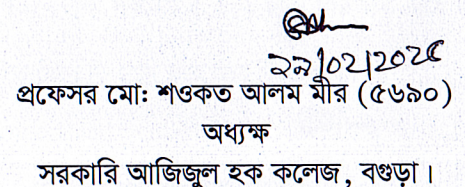 ২৯/০২/২০২৫
প্রফেসর মো: শওকত আলম মীর (৫৬৯০)
অধ্যক্ষ
সরকারি আজিজুল হক কলেজ, বগুড়া।